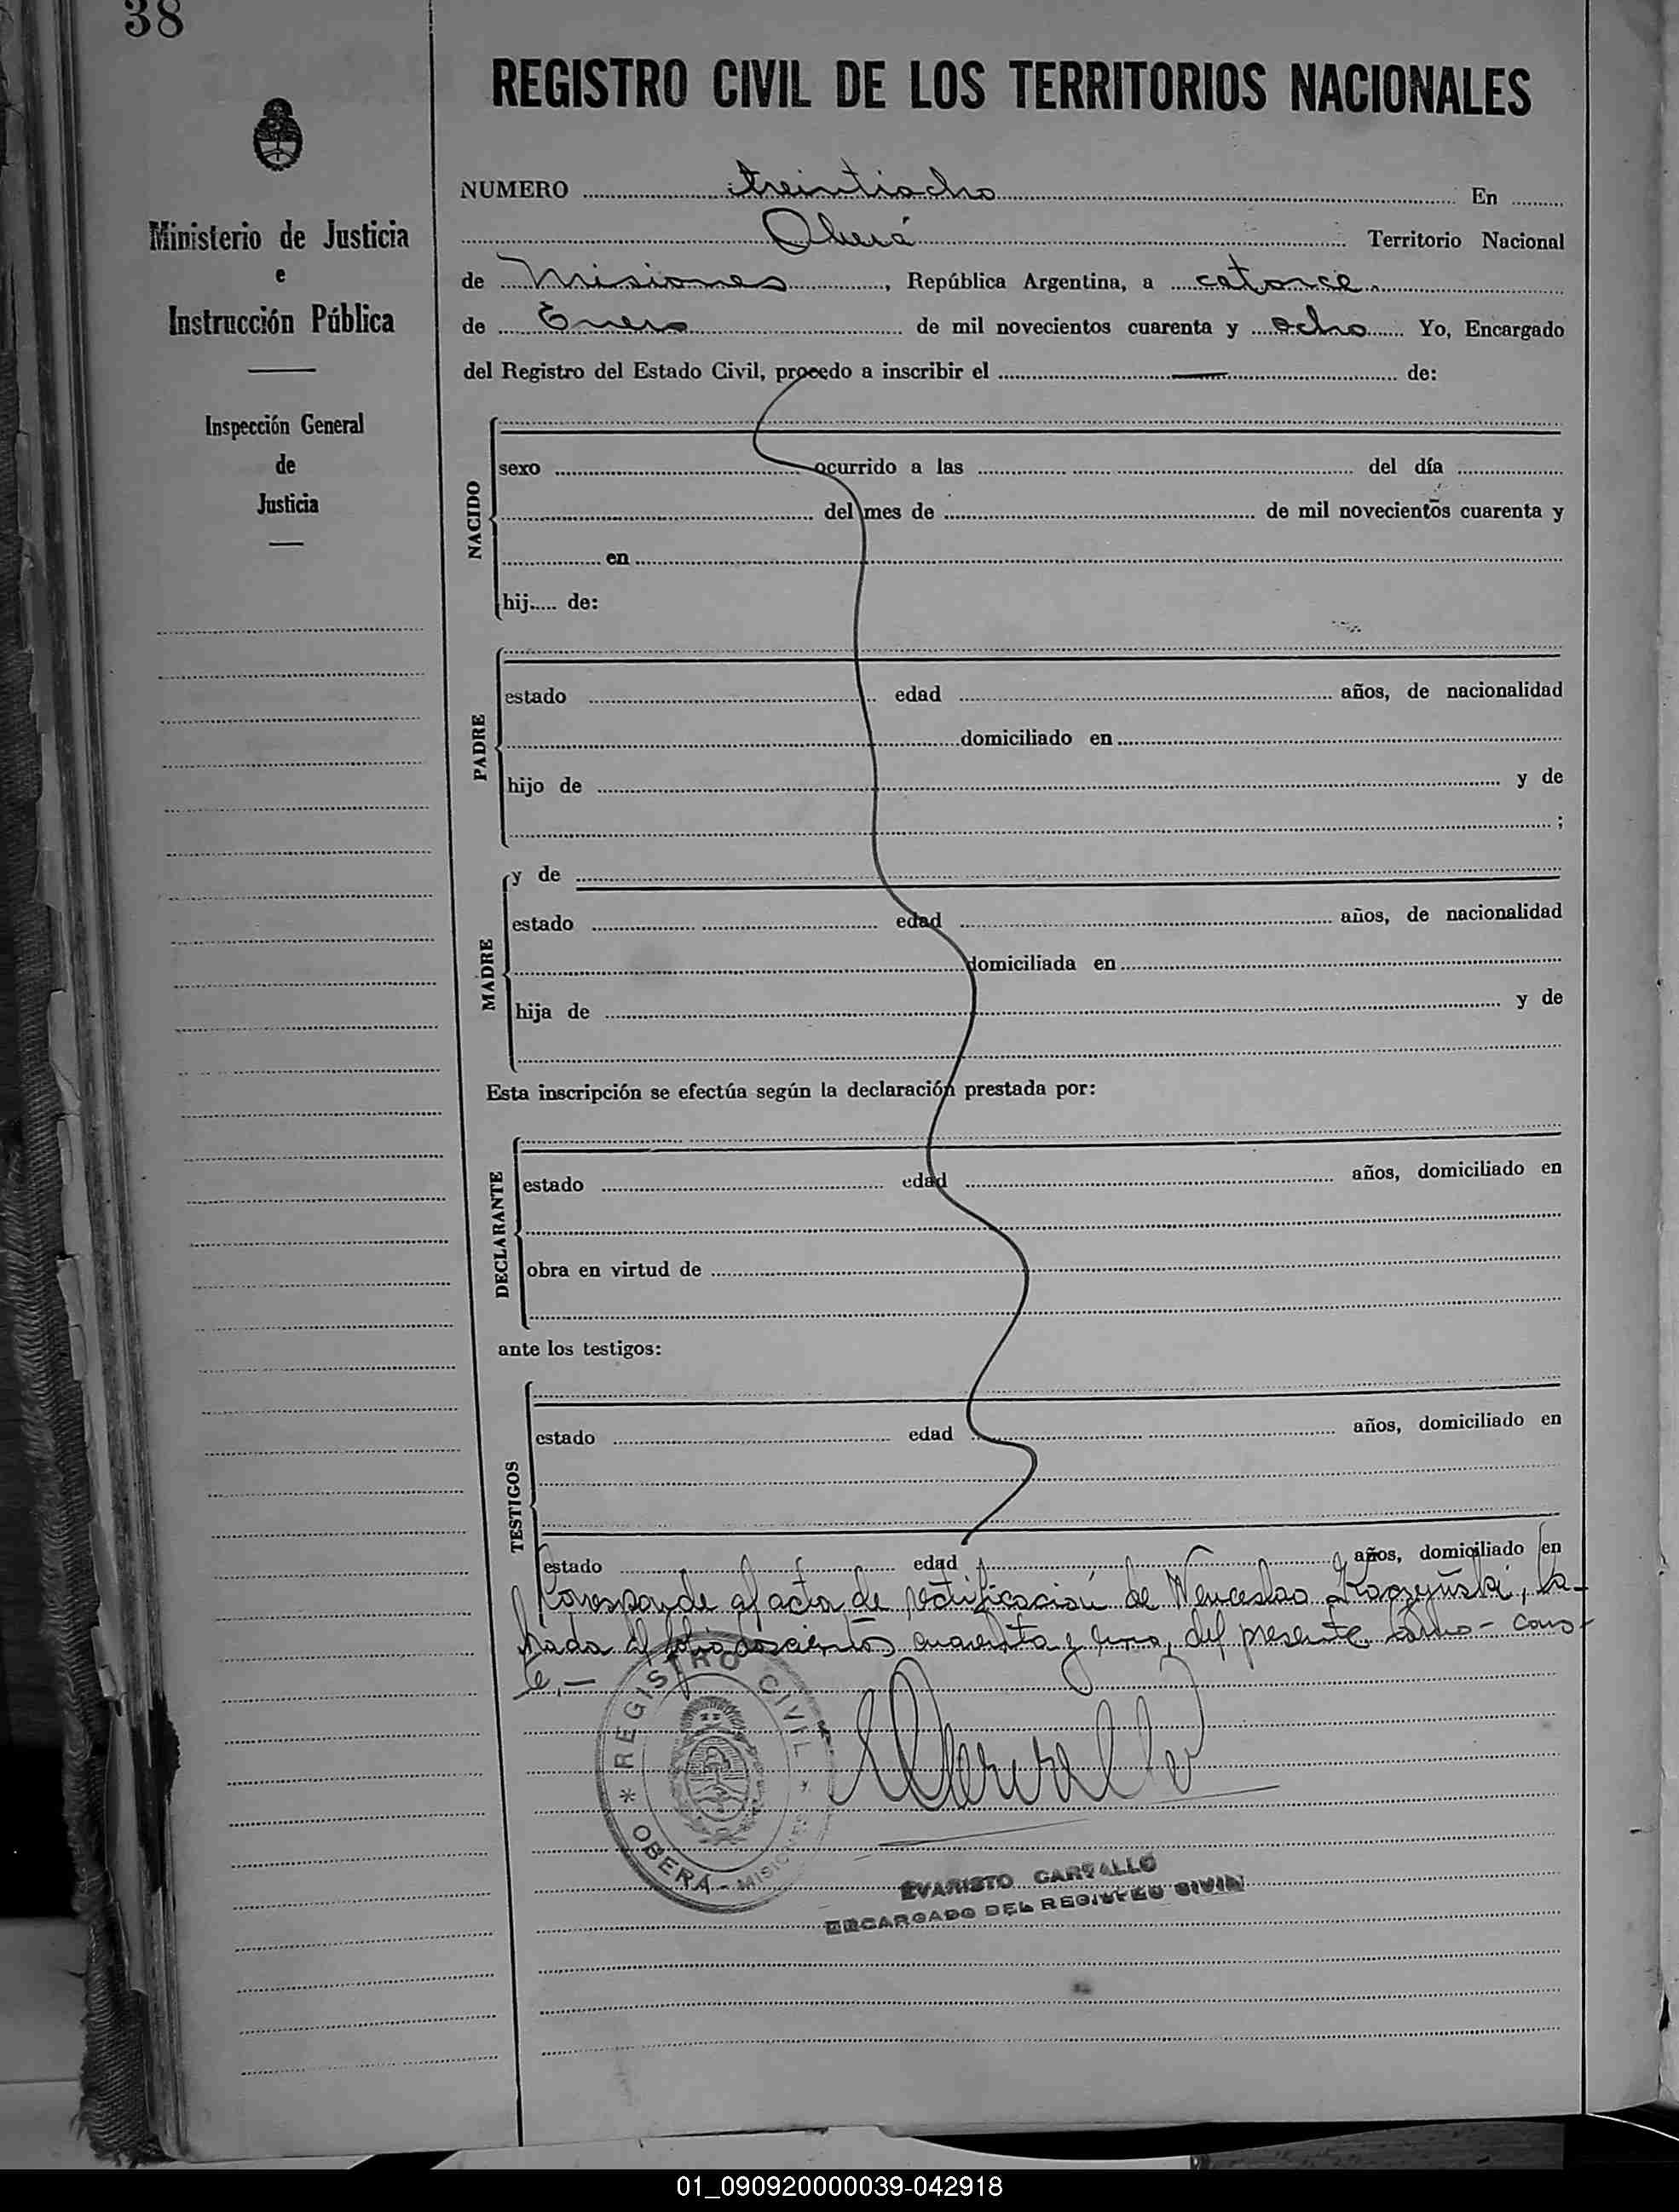 38
REGISTRO CIVIL DE LOS TERRITORIOS NACIONALES
Ministerio de Justicia
e
Instrucción Pública
Inspección General
de
Justicia
NUMERO treintiocho En
Oberá Territorio Nacional
de Misiones, República Argentina, a catorce
de Enero de mil novecientos cuarenta y ocho Yo, Encargado
del Registro del Estado Civil, procedo a inscribir el — de:
NACIDO
sexo ocurrido a las del día
del mes de de mil novecientos cuarenta y
en
hij de:
PADRE
estado edad años, de nacionalidad
domiciliado en
hijo de y de
;
MADRE
y de
estado edad años, de nacionalidad
domiciliada en
hija de y de
Esta inscripción se efectúa según la declaración prestada por:
DECLARANTE
estado edad años, domiciliado en
obra en virtud de
ante los testigos:
TESTIGOS
estado edad años, domiciliado en
estado edad años, domiciliado en
Corresponde al acta de rectificación de Wenceslao, la-
brada al folio doscientos cuarenta y uno, del presente tomo - cons-
te.—
REGISTRO CIVIL
OBERÁ - MISIONES
EVARISTO CARVALLO
ENCARGADO DEL REGISTRO CIVIL
01_090920000039-042918